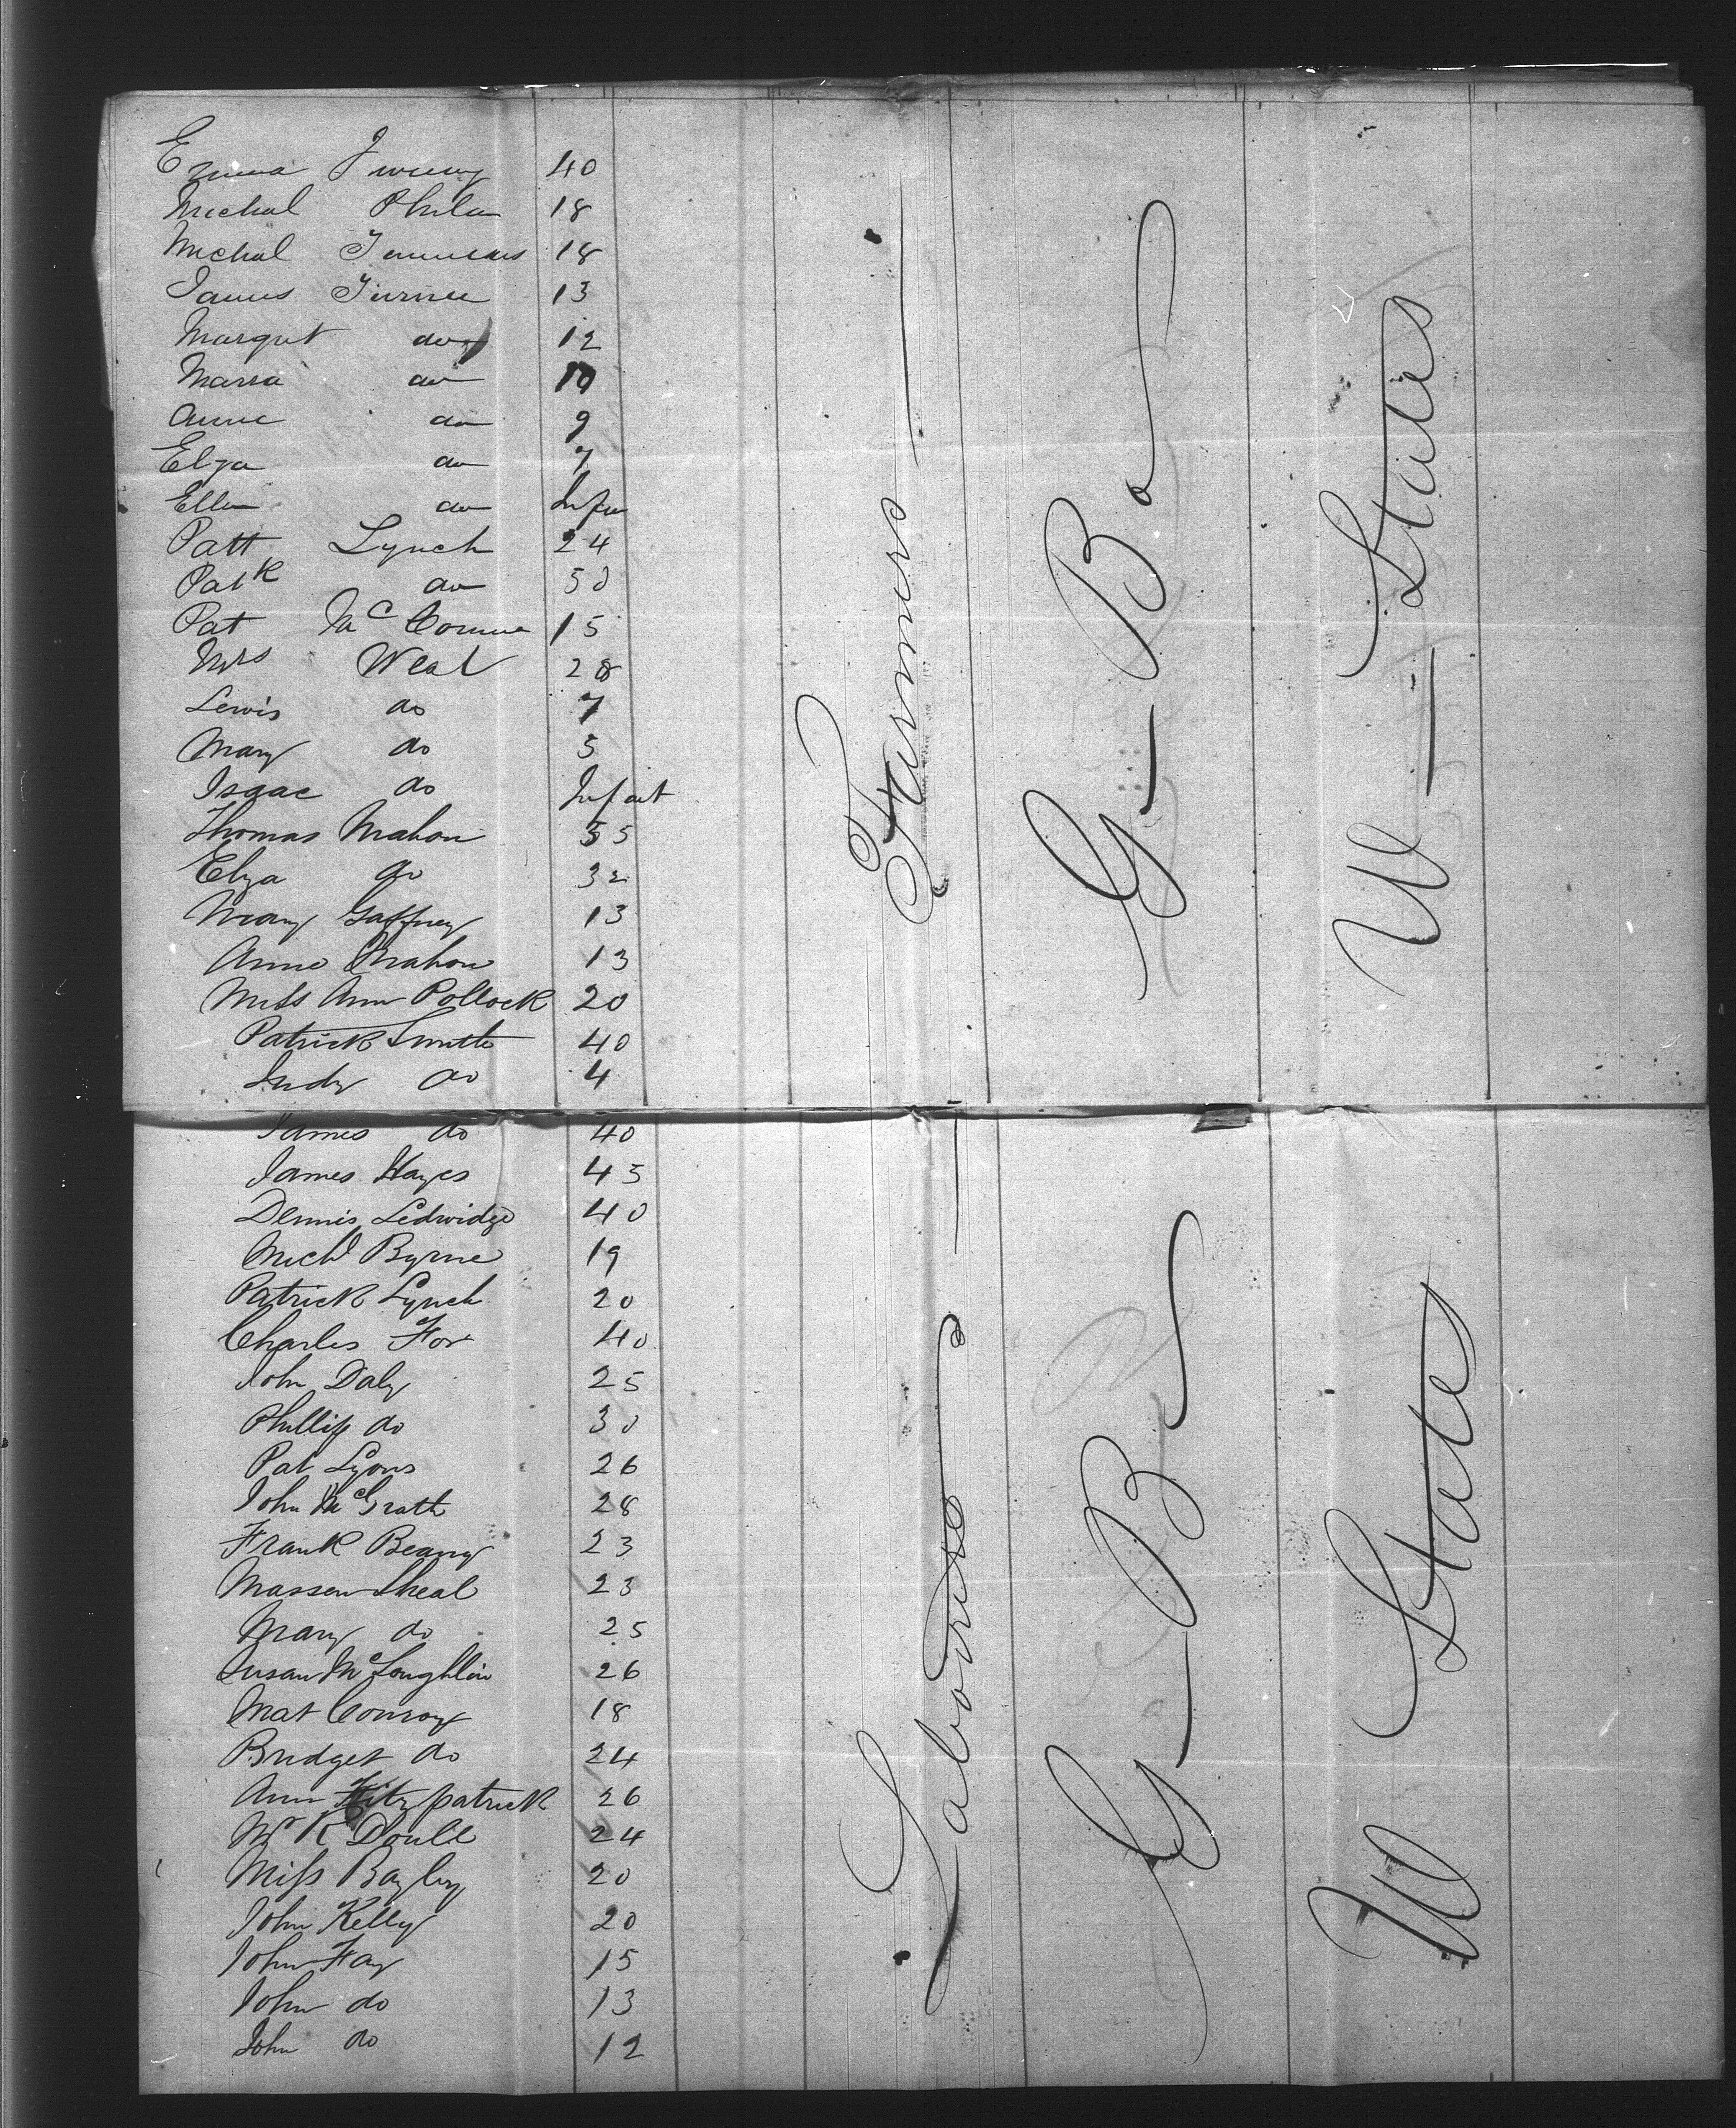 Emma 40
Michal Phila 18
Michal 18
James Turner 13
Margret do 12
Maria do 10
Anne do 9
Elza do 7
Ellen do Infn
Patt Lynch 24
Patk do 50
Pat Mc 15
Mrs Weal 28
Lewis do 7
Mary do 5
Isaac do Infant
Thomas Mahon 35
Eliza do 32
Mary Gaffney 13
Anne Mahon 13
Miss Ann Pollock 20
Patrick Smith 40
Judy do 4
Farmers
G B
U States
James do 40
James Hayes 45
Dennis Ledwidge 40
Michl Byrne 19
Patrick Lynch 20
Charles Fox 40
John Daly 25
Phillip do 30
Pat Lyons 26
John McGrath 28
Frank Beany 23
Sheal 23
Mary do 25
Susan McLoughlin 26
Mat Conroy 18
Bridget do 24
Ann Fitzpatrick 26
Mr R Doull 24
Miss Bayley 20
John Kelly 20
John Fay 15
John do 13
John do 12
Laborers
G B
U States